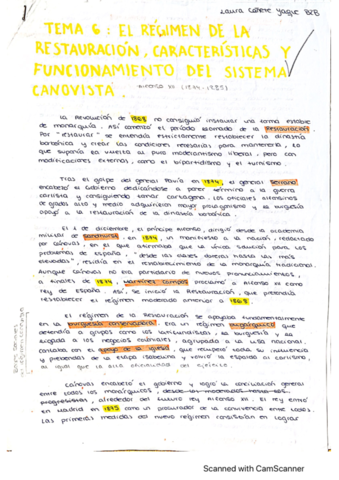 Laura Cañete Yaque B2B
TEMA 6: EL RÉGIMEN DE LA
RESTAURACIÓN, CARACTERÍSTICAS Y
FUNCIONAMIENTO DEL SISTEMA
CANOVISTA.
Alfonso XII (1874-1885)
La Revolución de 1868 no consiguió instaurar una forma estable
de monarquía. Así comenzó el período llamado de la Restauración.
Por "restaurar" se entendía estrictamente restablecer la dinastía
borbónica y crear las condiciones necesarias para mantenerla, lo
que suponía la vuelta al puro moderantismo liberal, pero con
modificaciones externas, como el bipartidismo y el turnismo.
Tras el golpe del general Pavía en 1874, el general Serrano
encabezó el Gobierno dedicándose a poner término a la guerra
carlista y consiguiendo tomar Cartagena. Los oficiales alfonsinos
de grados alto y medio adquirieron mayor protagonismo y la burguesía
apoyó a la restauración de la dinastía borbónica.
El 1 de diciembre, el príncipe Alfonso, dirigió desde la academia
militar de Sandhurst, en 1874, un manifiesto a la nación, redactado
por Cánovas, en el que afirmaba que la única solución para los
problemas de España, "desde las clases obreras hasta las más
elevadas", residía en el restablecimiento de la monarquía tradicional.
Aunque Cánovas no era partidario de nuevos pronunciamientos,
a finales de 1874, Martínez Campos proclamó a Alfonso XII como
rey de España. Así, se inició la Restauración, que pretendía
restablecer el régimen moderado anterior a 1868.
El régimen de la Restauración se apoyaba fundamentalmente
en la burguesía conservadora. Era un régimen oligárquico que
defendía a grupos como los latifundistas, la burguesía y
ligada a los negocios coloniales, agrupada a la liga nacional.
Contaba con el apoyo de la iglesia que recuperó toda su influencia
y preponderancia de la etapa isabelina y retiró la espada al carlismo,
al igual que la alta oficialidad del ejército.
Cánovas encabezó el gobierno y logró la conciliación general
entre todos los monárquicos, desde los moderados hasta los
progresistas, alrededor del futuro rey Alfonso XII. El rey entró
en Madrid en 1875 como un procurador de la convivencia entre todos.
Las primeras medidas del nuevo régimen consistían en lograr
Scanned with CamScanner